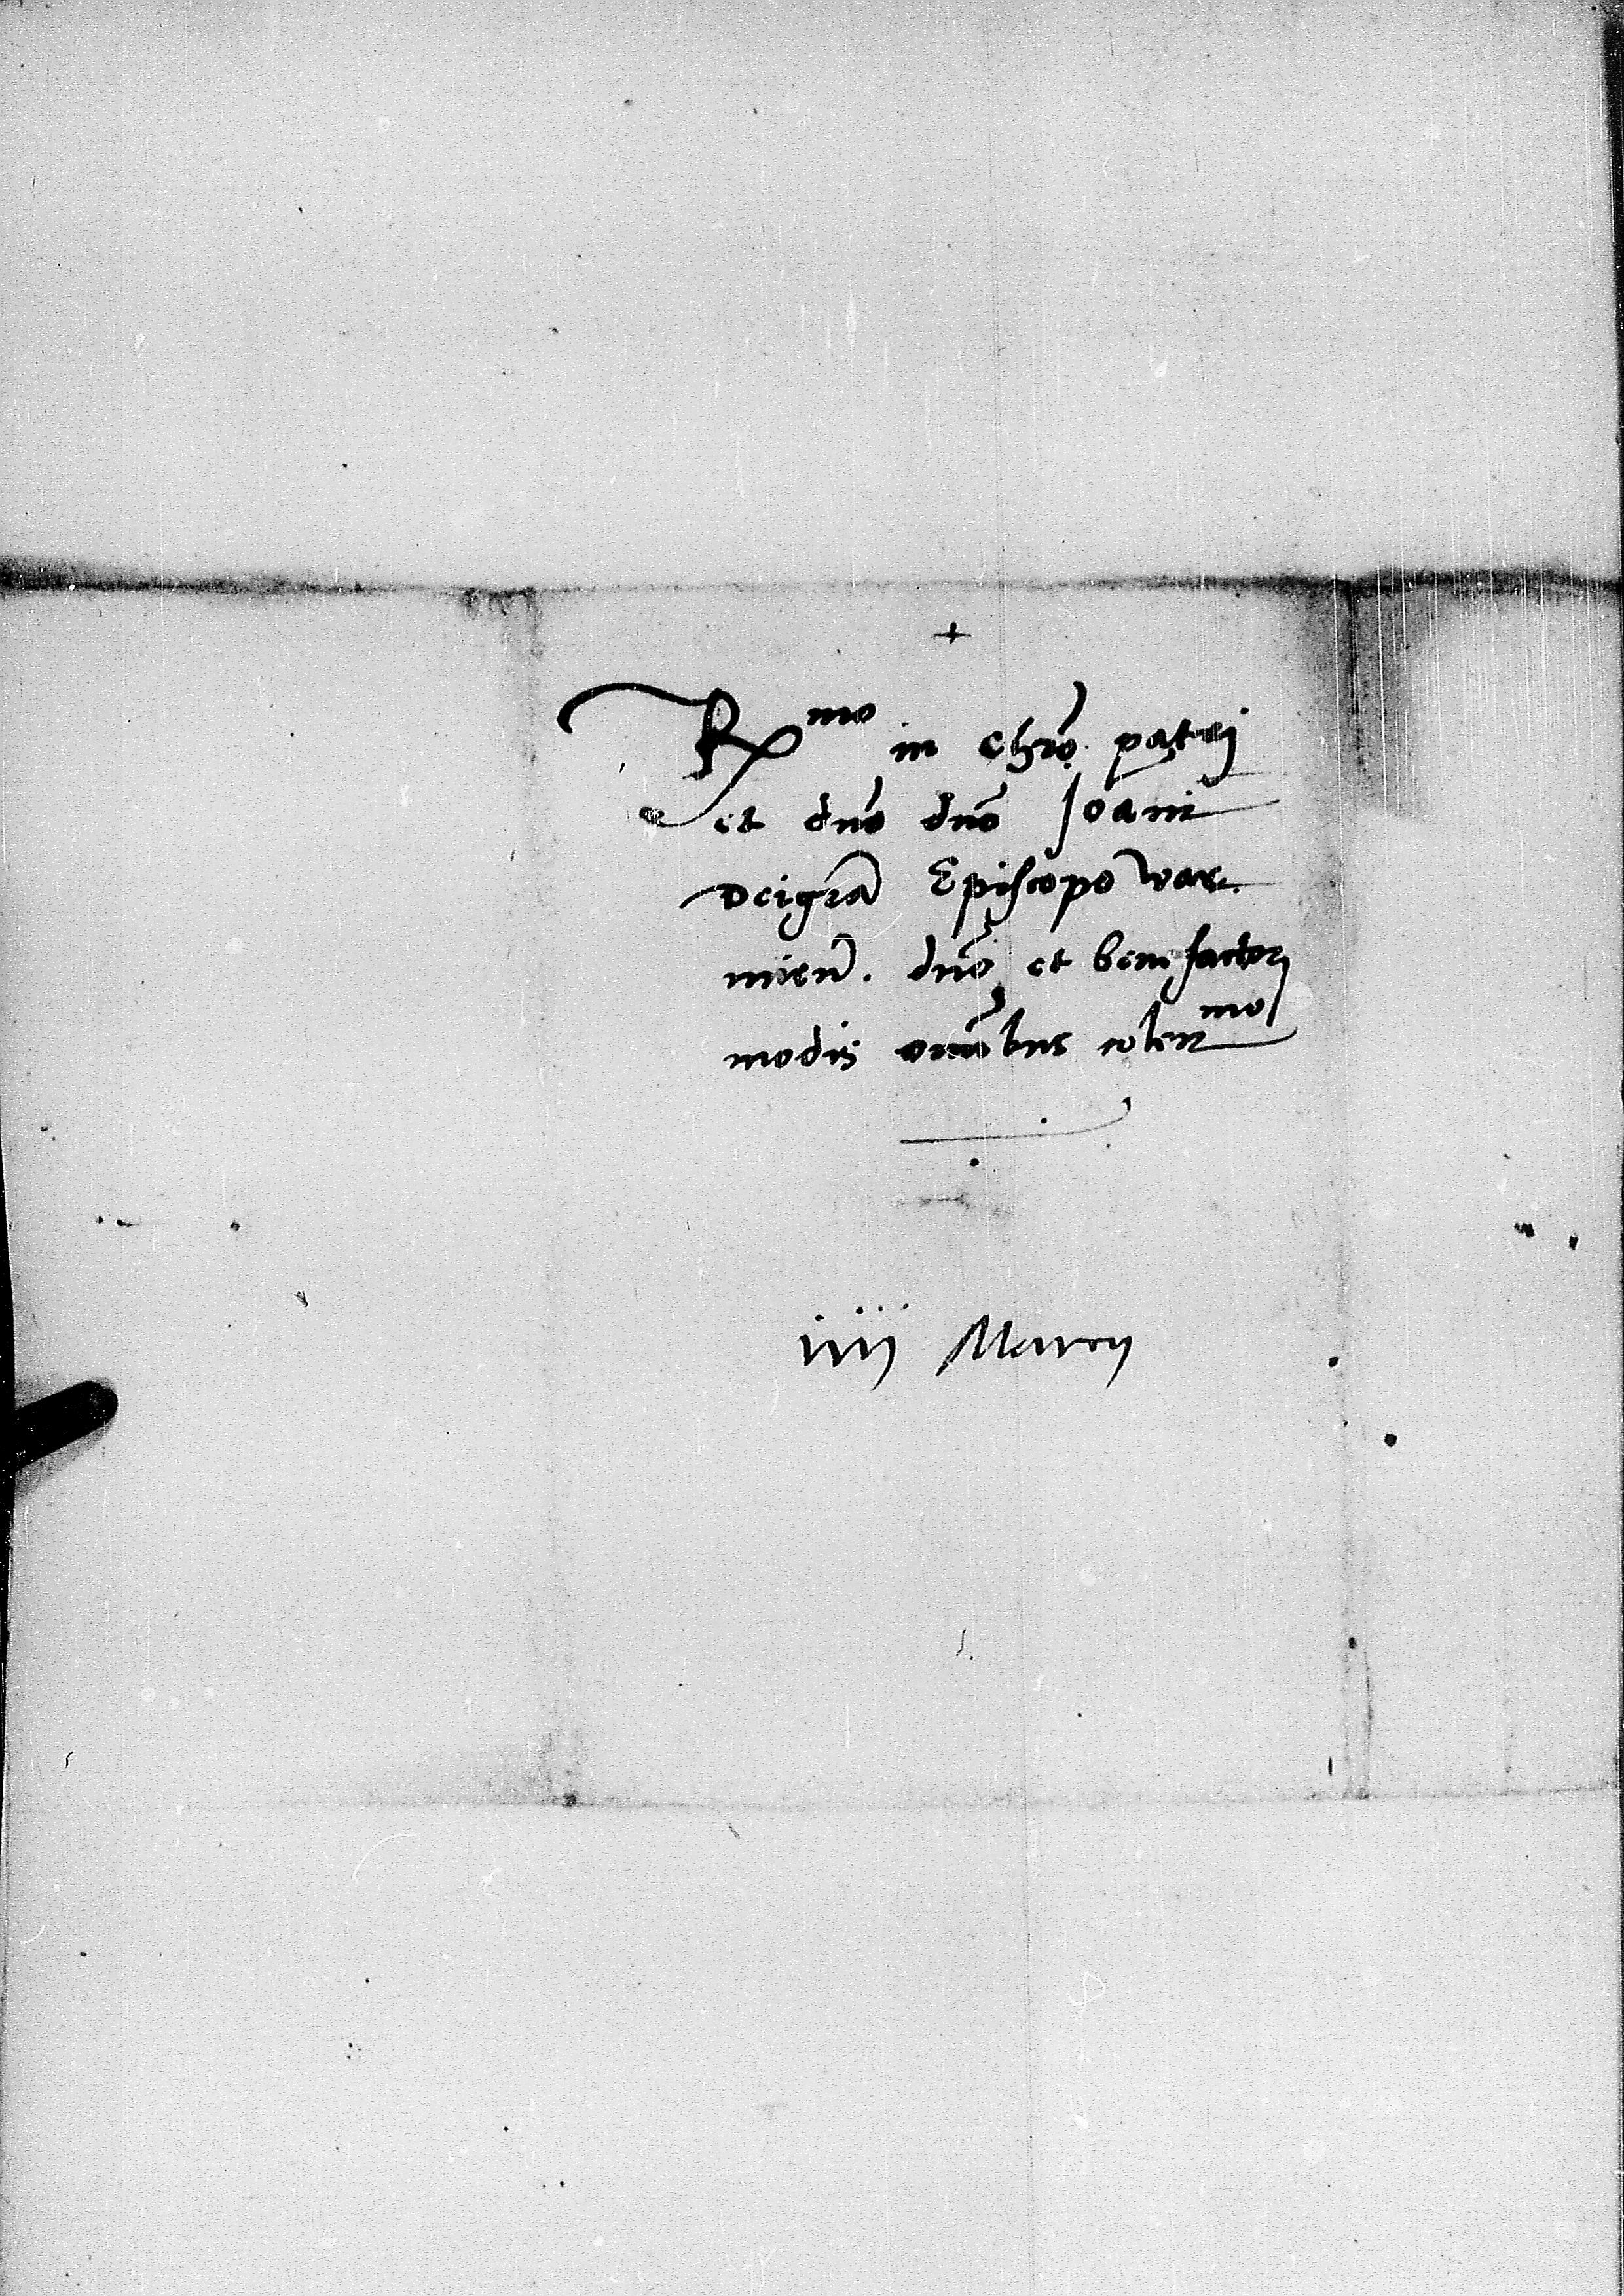 +
R^mo in chr̄o patri
et dn̄o dn̄o Joani
Dei gr̄a Episcopo war
mien̄. dn̄o et benefactori
modis om̄ibus colen^mo
iiij Marcij